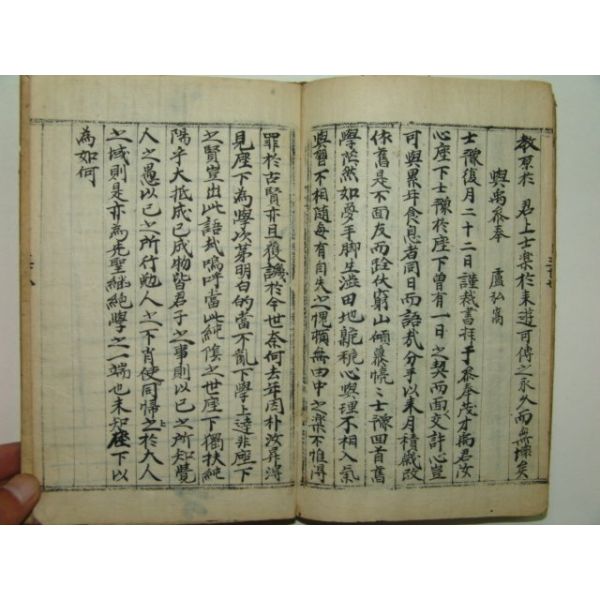 教原於 君上士樂於來遊可傳之永久而無壞矣
與禹參奉 盧弘窩
士豫復月二十二日謹裁書拜于參奉茂才禹君汝
心座下士豫於座下曾有一日之契而面交許心豈
可與累年食息者同日而語哉分手以來月積歲改
依舊是不面友而跧伏窮山傾慕憬憬士豫回首舊
學茫然如夢手脚生澁田地 心與理不相入氣
與習不相隨每有自失之愧頓無由中之樂不惟得
罪於古賢亦且獲譏於今世奈何去年因朴汝昇得
見座下為學次第明白的當不亂下學上達非座下
之賢豈出此語哉嗚呼當此純陰之世座下獨扶純
陽乎大抵成己成物皆君子之事則以己之所知覺
人之愚以己之所行勉人之不肖使同歸之於大人
之域則是亦為先聖継絕學之一端也未知座下以
為如何